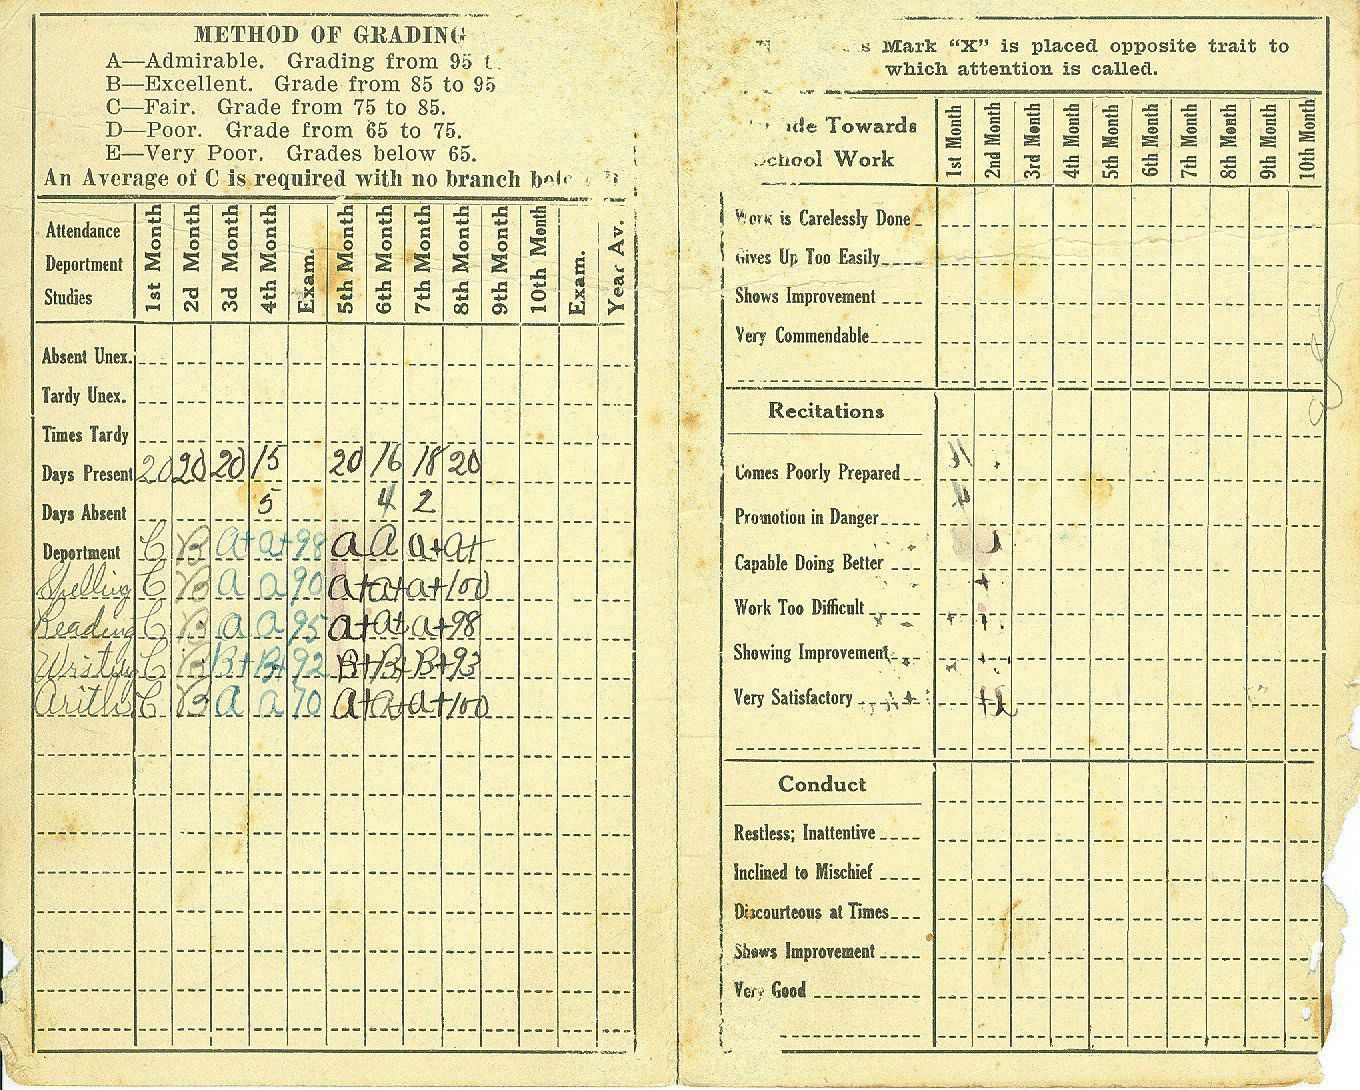 METHOD OF GRADING
A—Admirable. Grading from 95
B—Excellent. Grade from 85 to 95
C—Fair. Grade from 75 to 85.
D—Poor. Grade from 65 to 75.
E—Very Poor. Grades below 65.
An Average of C is required with no branch
Attendance
Deportment
Studies
1st Month 2d Month 3d Month 4th Month Exam. 5th Month 6th Month 7th Month 8th Month 9th Month 10th Month Exam. Year Av.
Absent Unex.
Tardy Unex.
Times Tardy
Days Present 20 20 20 15 20 16 18 20
Days Absent 5 4 2
Deportment C B a+ a+ 98 a a a+ a+
Spelling C B a a 90 a+ a+ a+ 100
Reading C B a a 95 a+ a+ a+ 98
Writing C B B+ B+ 92 B+ B+ B+ 93
Arith. C B a a 70 a+ a+ a+ 100
Mark "X" is placed opposite trait to
which attention is called.
Towards
School Work
1st Month 2nd Month 3rd Month 4th Month 5th Month 6th Month 7th Month 8th Month 9th Month 10th Month
Work is Carelessly Done
Gives Up Too Easily
Shows Improvement
Very Commendable
Recitations
Comes Poorly Prepared
Promotion in Danger
Capable Doing Better
Work Too Difficult
Showing Improvement
Very Satisfactory
Conduct
Restless; Inattentive
Inclined to Mischief
Discourteous at Times
Shows Improvement
Very Good